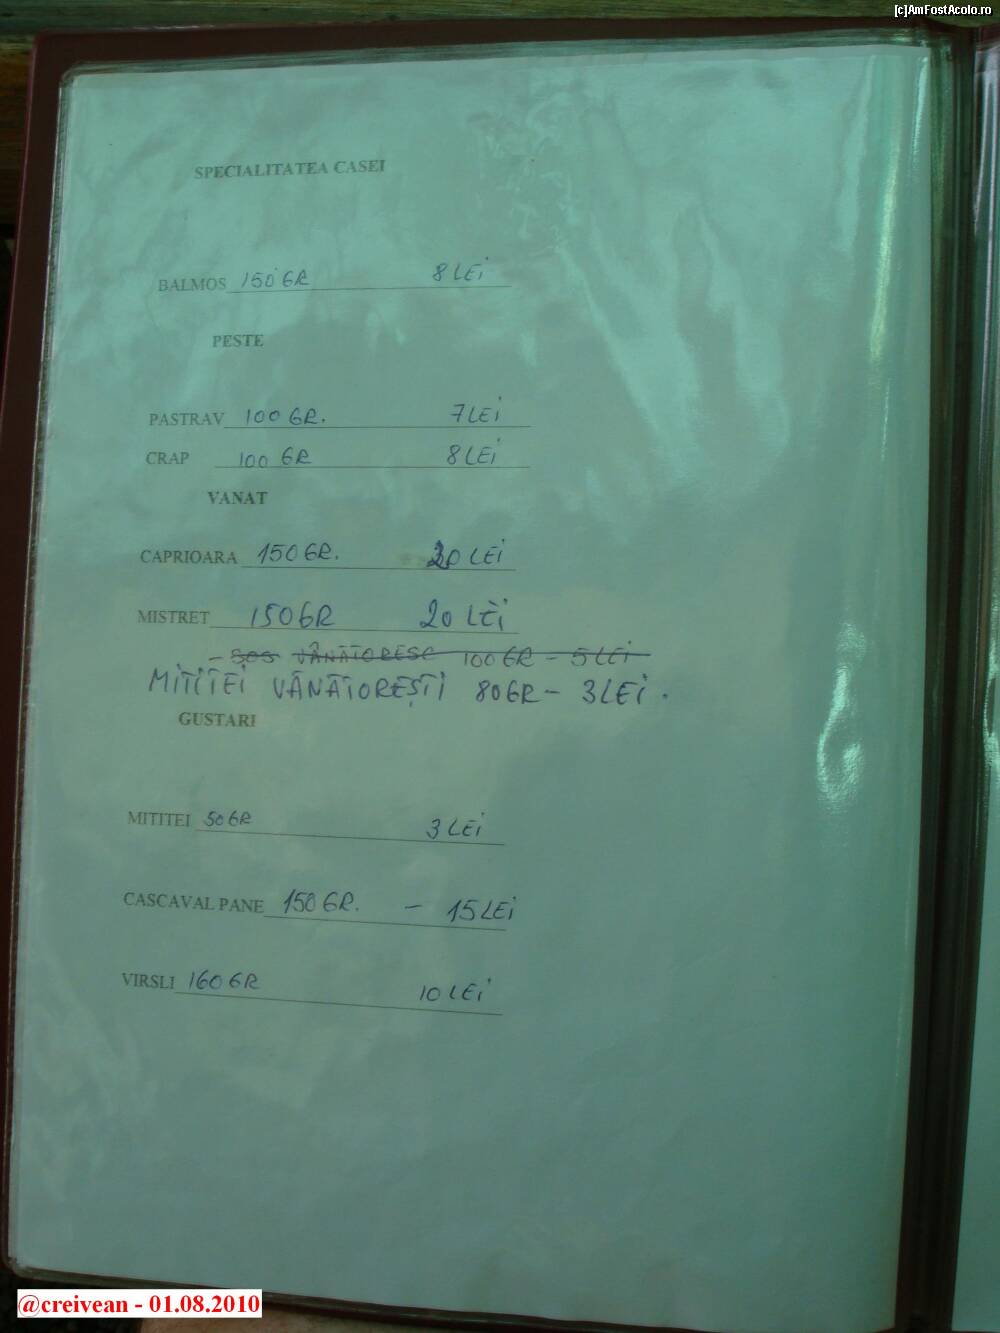 [c]AmFostAcolo.ro
SPECIALITATEA CASEI
BALMOS 150 GR 8 LEI
PESTE
PASTRAV 100 GR. 7 LEI
CRAP 100 GR 8 LEI
VANAT
CAPRIOARA 150 GR. LEI
MISTRET 150 GR 20 LEI
- SOS VÂNĂTORESC 100 GR - 5 LEI
MITITEI VÂNĂTOREȘTI 80 GR - 3 LEI.
GUSTARI
MITITEI 50 GR 3 LEI
CASCAVAL PANE 150 GR. - 15 LEI
VIRSLI 160 GR 10 LEI
@creivean - 01.08.2010